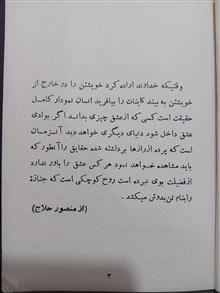 وقتیکه خداوند اراده کرد خویشتن را در خارج از
خویشتن به بیند کاینات را بیافرید انسان نمودار کامل
حقیقت است کسی که از عشق چیزی بداند اگر بوادی
عشق داخل شود دنیای دیگری خواهد دید آنزمان
است که پرده از رازها برداشته شده حقایق را آنطور که
باید مشاهده خواهد نمود هر کس عشق را باور ندارد
از فضیلت بوی نبرده است روح کوچکی است که جنازه
را بنام تن بدوش میکشد .
(از منصور حلاج)
۳